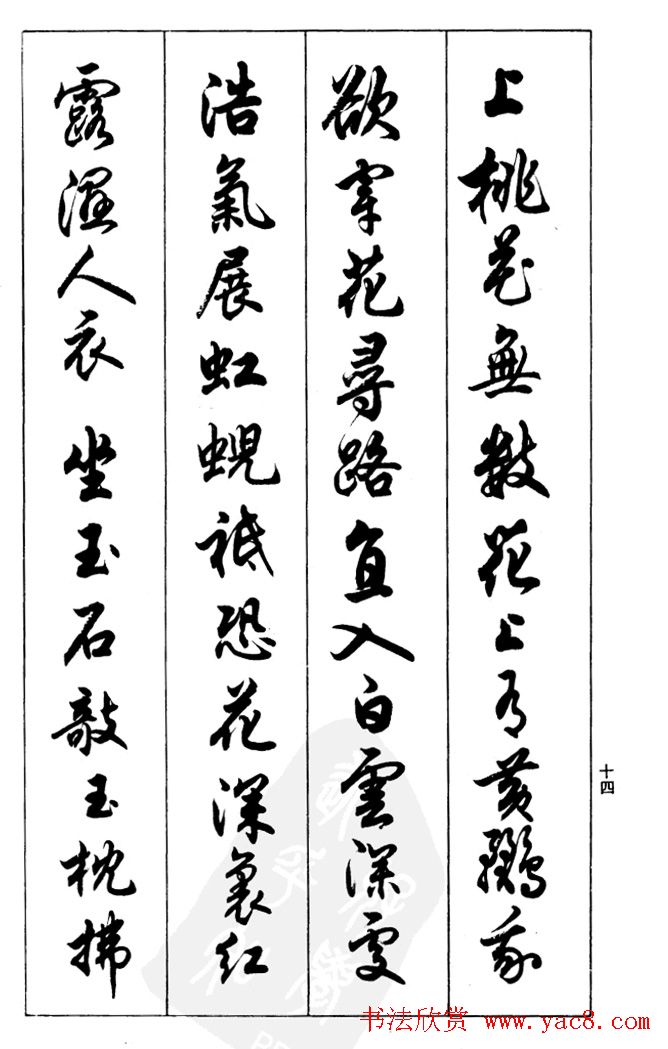 上桃花無數花上有黃鸝我
欲穿花尋路直入白雲深處
浩氣展虹蜺祗恐花深裏紅
露濕人衣 坐玉石敲玉枕拂
十四
书法欣赏 www.yac8.com